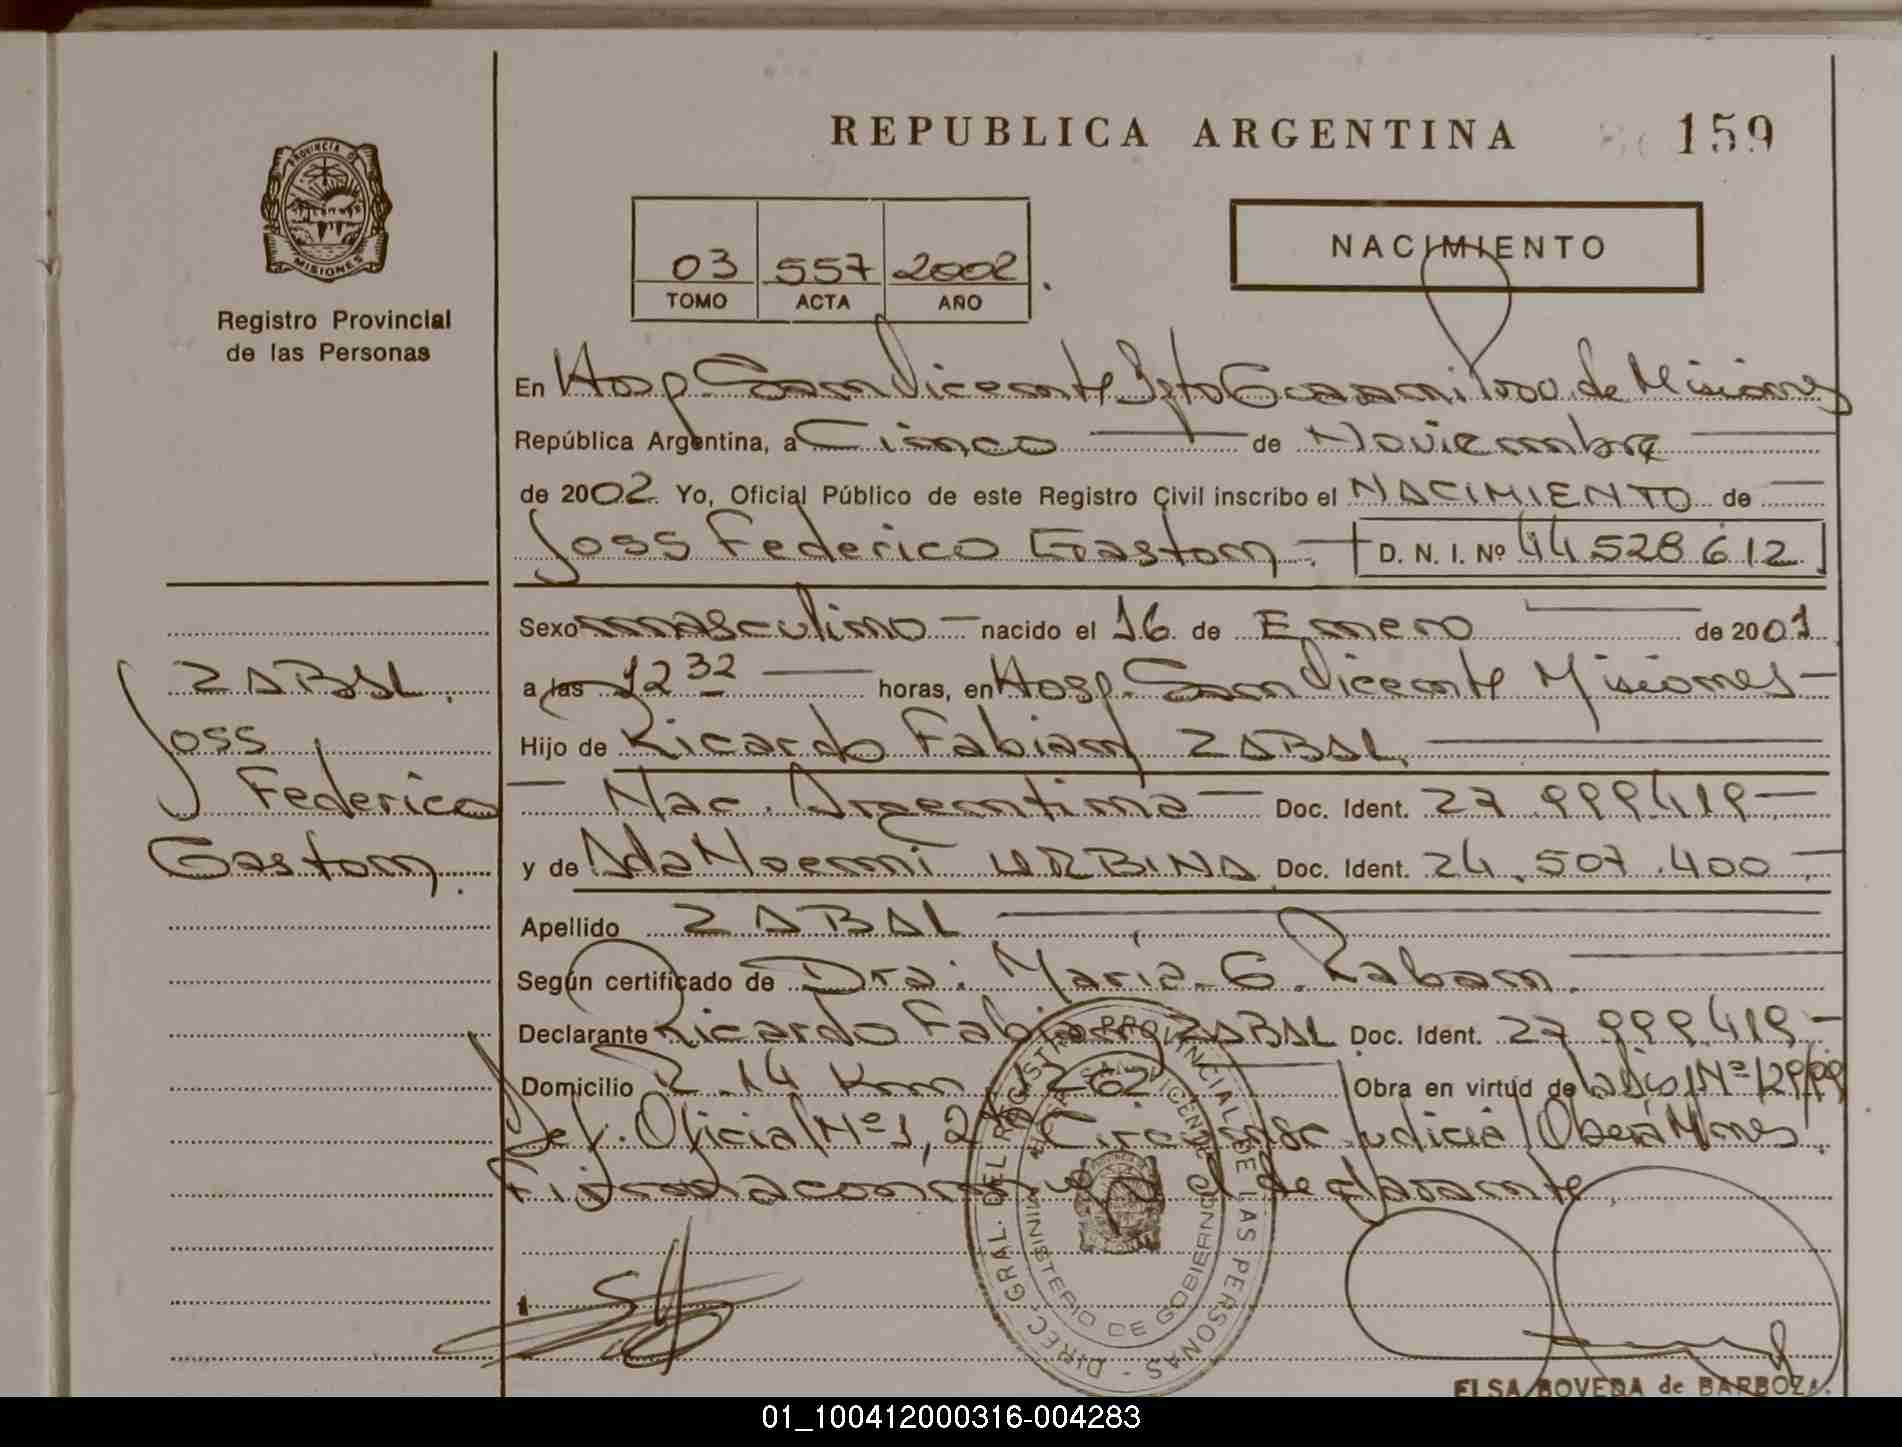 REPUBLICA ARGENTINA 159
PROVINCIA DE
MISIONES
Registro Provincial
de las Personas
03 557 2002
TOMO ACTA AÑO
NACIMIENTO
En Hosp. San Vicente Dpto Guarani Prov. de Misiones
República Argentina, a Cinco de Noviembre
de 2002. Yo, Oficial Público de este Registro Civil inscribo el NACIMIENTO de
Joss Federico Gaston. D. N. I. Nº 44.528.612
Sexo masculino nacido el 16 de Enero de 2001
a las 12 32 horas, en Hosp. San Vicente Misiones
Hijo de Ricardo Fabian ZABAL
Nac. Argentina Doc. Ident. 27.999.419
y de Ada Noemi URBINA Doc. Ident. 24.507.400
Apellido ZABAL
Según certificado de Dra. Maria G. Raban.
Declarante Ricardo Fabian ZABAL Doc. Ident. 27.999.419
Domicilio R. 14 Km. 1262 Obra en virtud de
Def. Oficial Nº 1, 2º Circunsc Judicial Oberá Mnes.
Firma conmigo el declarante.
ZABAL.
Joss
Federico
Gaston.
DIREC. GRAL. DEL REGISTRO PROVINCIAL DE LAS PERSONAS
MINISTERIO DE GOBIERNO
SAN VICENTE
ELSA BOVEDA de BARBOZA
01_100412000316-004283